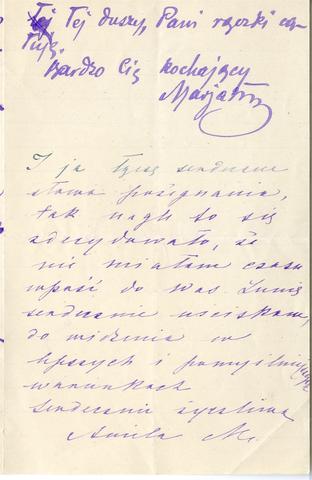 Tej duszy, Pani rączki ca-
łuję.
Bardzo Cię kochający
Marjan
I ja łączę serdeczne
słowa pożegnania,
tak nagle to się
zdecydowało, że
nie miałam czasu
wpaść do Was
serdecznie uściskam,
do widzenia w
lepszych i pomyślniejszych
warunkach
Serdecznie życzliwa
M.